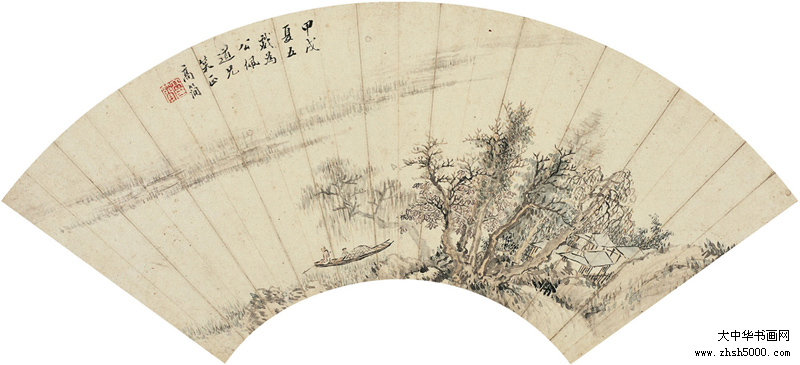 甲戌
夏五
戏为
公佩
道兄
笑正
高简
大中华书画网
www.zhsh5000.com